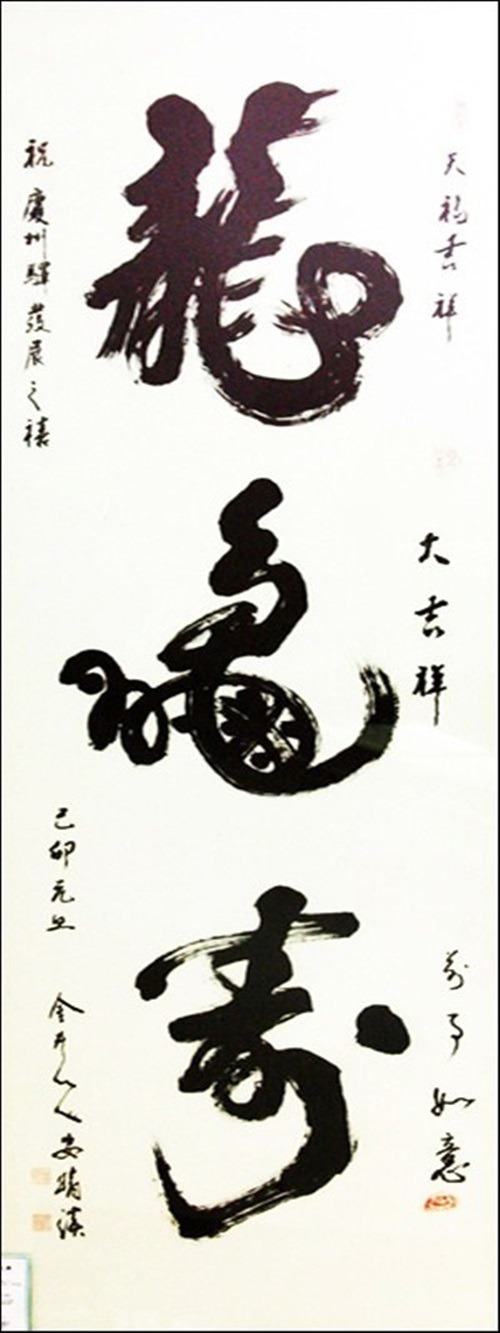 天福吉祥
大吉祥
萬事如意
龍
龜
壽
祝慶州驛發展之禧
己卯元旦
金井山人安晴